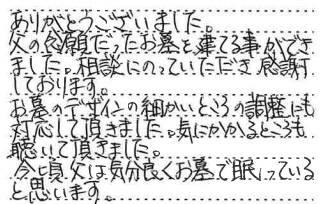 ありがとうございました。
父の念願だったお墓を建てる事ができ
ました。相談にのっていただき感謝
しております。
お墓のデザインの細かいところの調整にも
対応して頂きました。気にかかるところも
聴いて頂きました。
今頃父は気分良くお墓で眠っている
と思います。